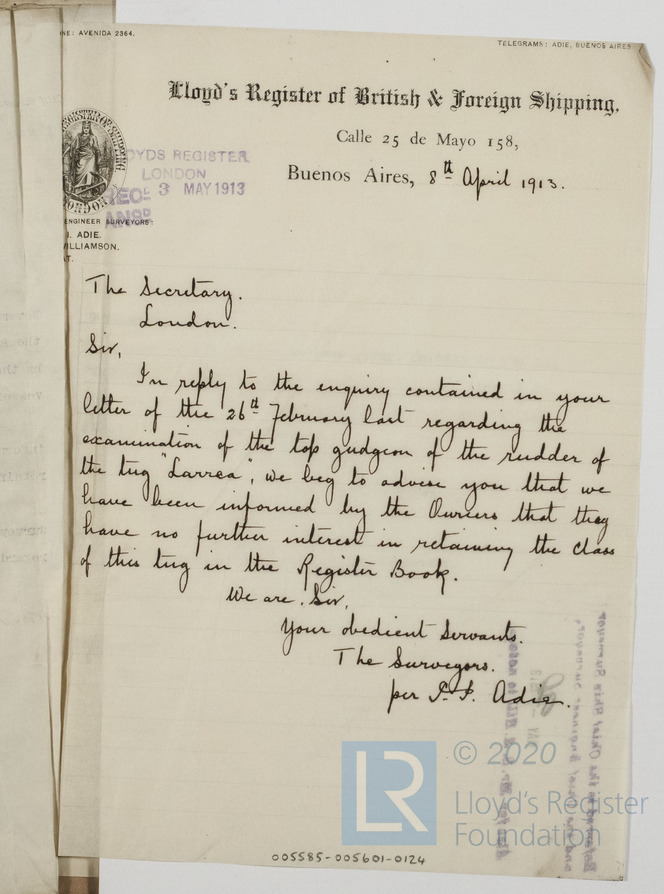 NE: AVENIDA 2364.
TELEGRAMS: ADIE, BUENOS AIRES
Lloyd's Register of British & Foreign Shipping.
Calle 25 de Mayo 158,
Buenos Aires, 8th April 1913.
REGISTER OF SHIPPING
LONDON
OYDS REGISTER
LONDON
REC
3 MAY 1913
ANSD
ENGINEER SURVEYORS:
ADIE.
ILLIAMSON.
The Secretary.
London.
Sir,
In reply to the enquiry contained in your
letter of the 26th February last regarding the
examination of the top gudgeon of the rudder of
the tug "Larrea", we beg to advise you that we
have been informed by the Owners that they
have no further interest in retaining the class
of this tug in the Register Book.
We are, Sir,
Your obedient Servants.
The Surveyors.
per Adie.
LR
© 2020
Lloyd's Register
Foundation
005585-005601-0124